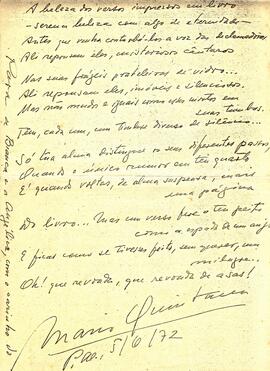 A beleza dos versos impressos em livro
- serena beleza com algo de eternidade -
Antes que venha conturbá-los a voz das declamadoras
Ali repousam eles, misteriosos cântaros
Nas suas frágeis prateleiras de vidro...
Ali repousam eles, imóveis e silenciosos.
Mas não mudos e iguais como esses mortos em
suas tumbas.
Têm, cada um, um timbre diverso de silêncio...
Só tua alma distingue os seus diferentes passos,
Quando o único rumor em teu quarto
É quando voltas, de alma suspensa, mais
uma página
Do livro... Mas um verso fere o teu peito
como a espada de um anjo
E ficas como se tivesses feito, sem querer, um
milagre...
Oh! que revoada, que revoada de asas!
Mario Quintana
P.A. 5/6/72
Para Bianca e Angélica, com o carinho do